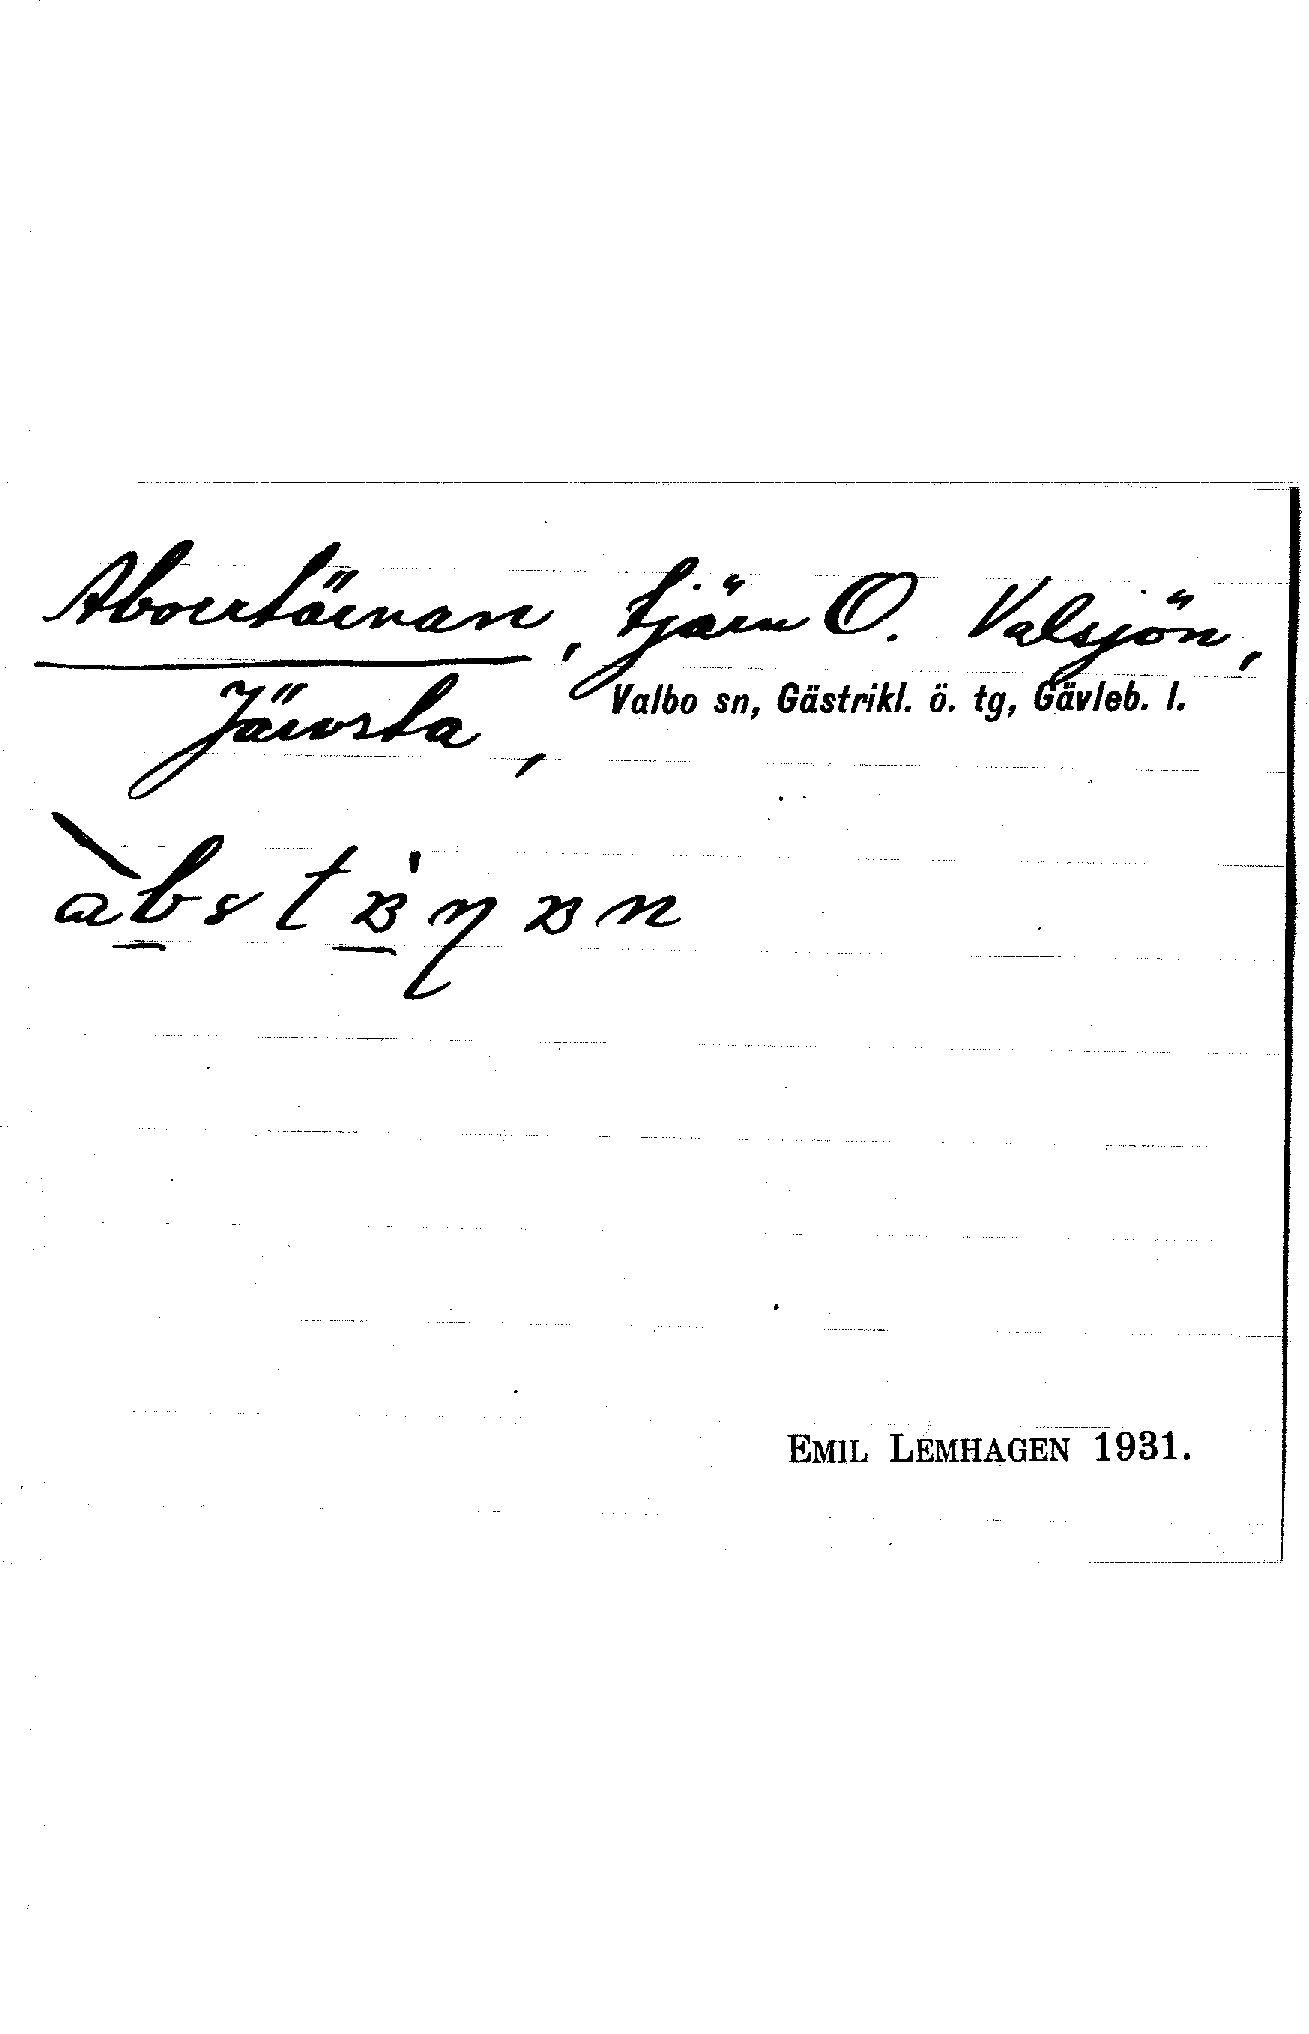 Aborrtärnan, tjärn O. Valsjön,
Järvsta, Valbo sn, Gästrikl. ö. tg, Gävleb. l.
EMIL LEMHAGEN 1931.